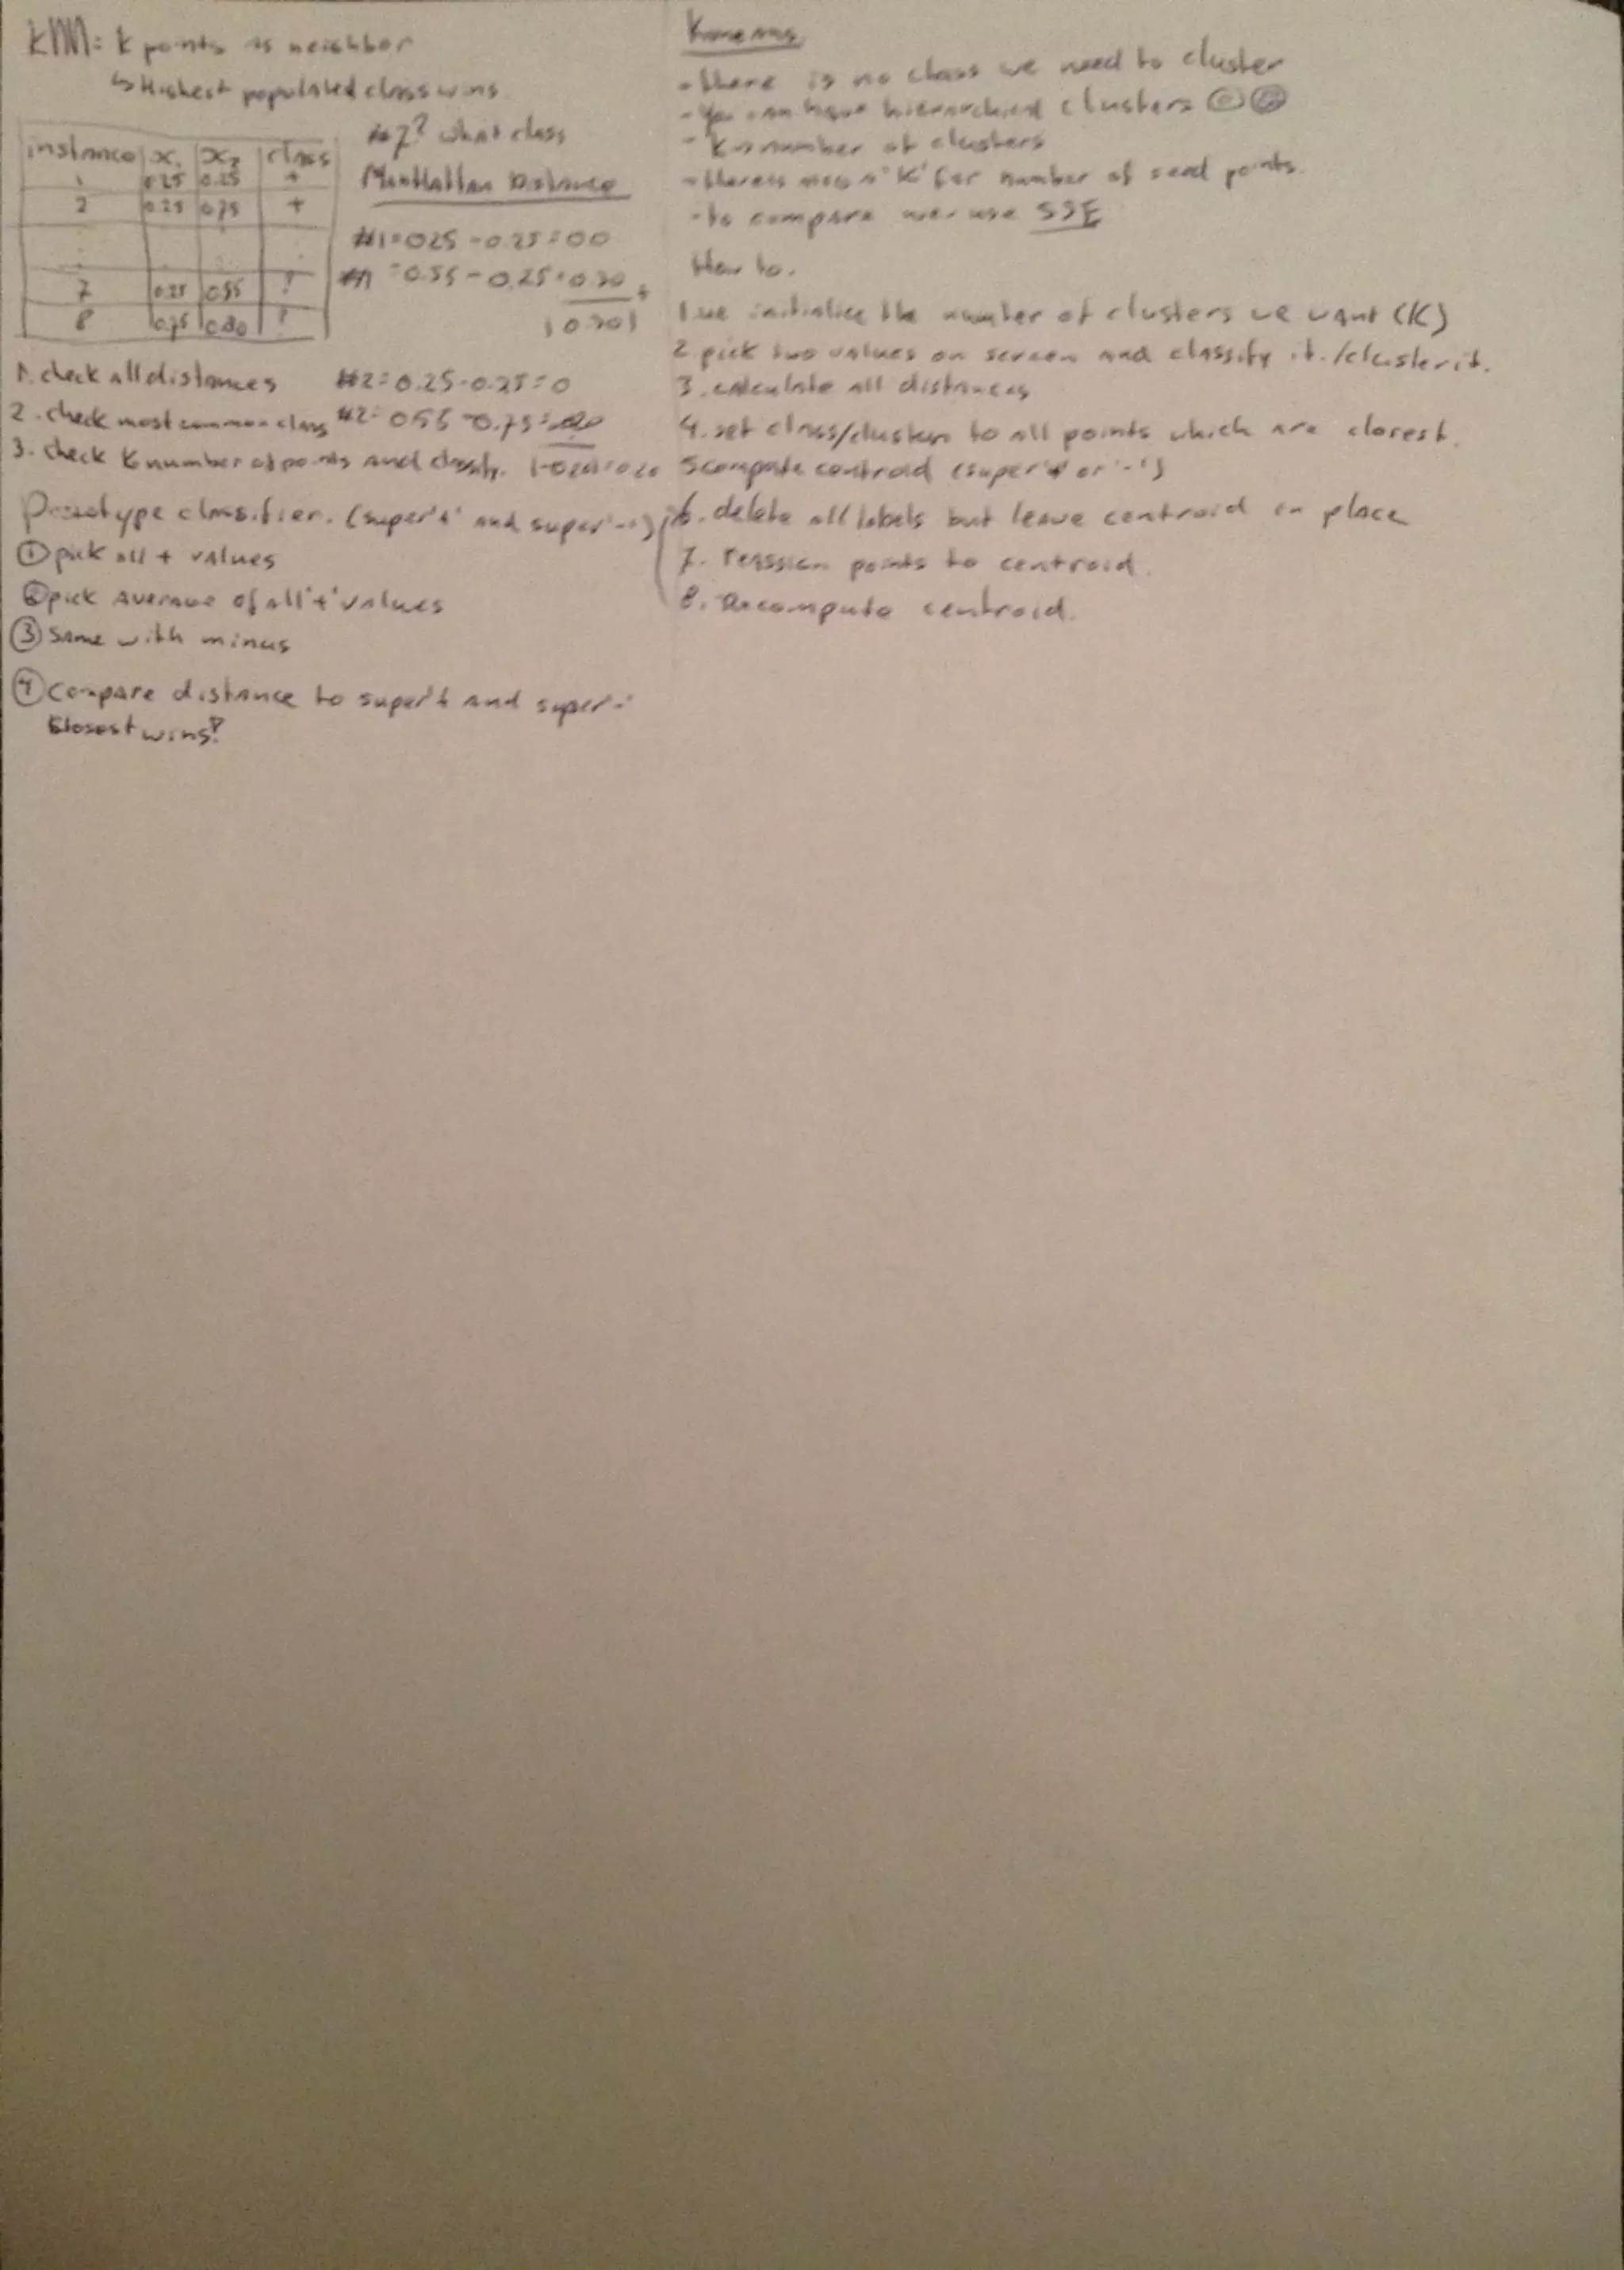 KNN = k points as neighbor
↳ Highest populated class wins
instance | x₁ | x₂ | class
1 | 0.25 | 0.25 | +
2 | 0.25 | 0.75 | +
7 | 0.25 | 0.55 | ?
8 | 0.75 | 0.80 | ?
#7? what class
Manhattan Distance
#1 = 0.25 - 0.25 = 0.0
#1 = 0.55 - 0.25 = 0.30 +
|0.30|
#2 = 0.25 - 0.25 = 0
#2 = 0.55 - 0.75 = -.20
|-0.20| = 0.20
1. check all distances
2. check most common class
3. check K number of points and classify.
Prototype classifier. (super '+' and super '-')
① pick all + values
② pick average of all '+' values
③ Same with minus
④ compare distance to super '+ and super -'
closest wins!
Kmeans
- there is no class we need to cluster
- You can have hierarchical clusters
- K = number of clusters
- 'K' for number of seed points.
- to compare we use SSE
How to.
1. we initialize the number of clusters we want (K)
2. pick two values on screen and classify it./cluster it.
3. calculate all distances
4. set class/clusters to all points which are closest.
5 compute centroid (super '+' or '-')
6. delete all labels but leave centroid in place
7. reassign points to centroid.
8. Recompute centroid.